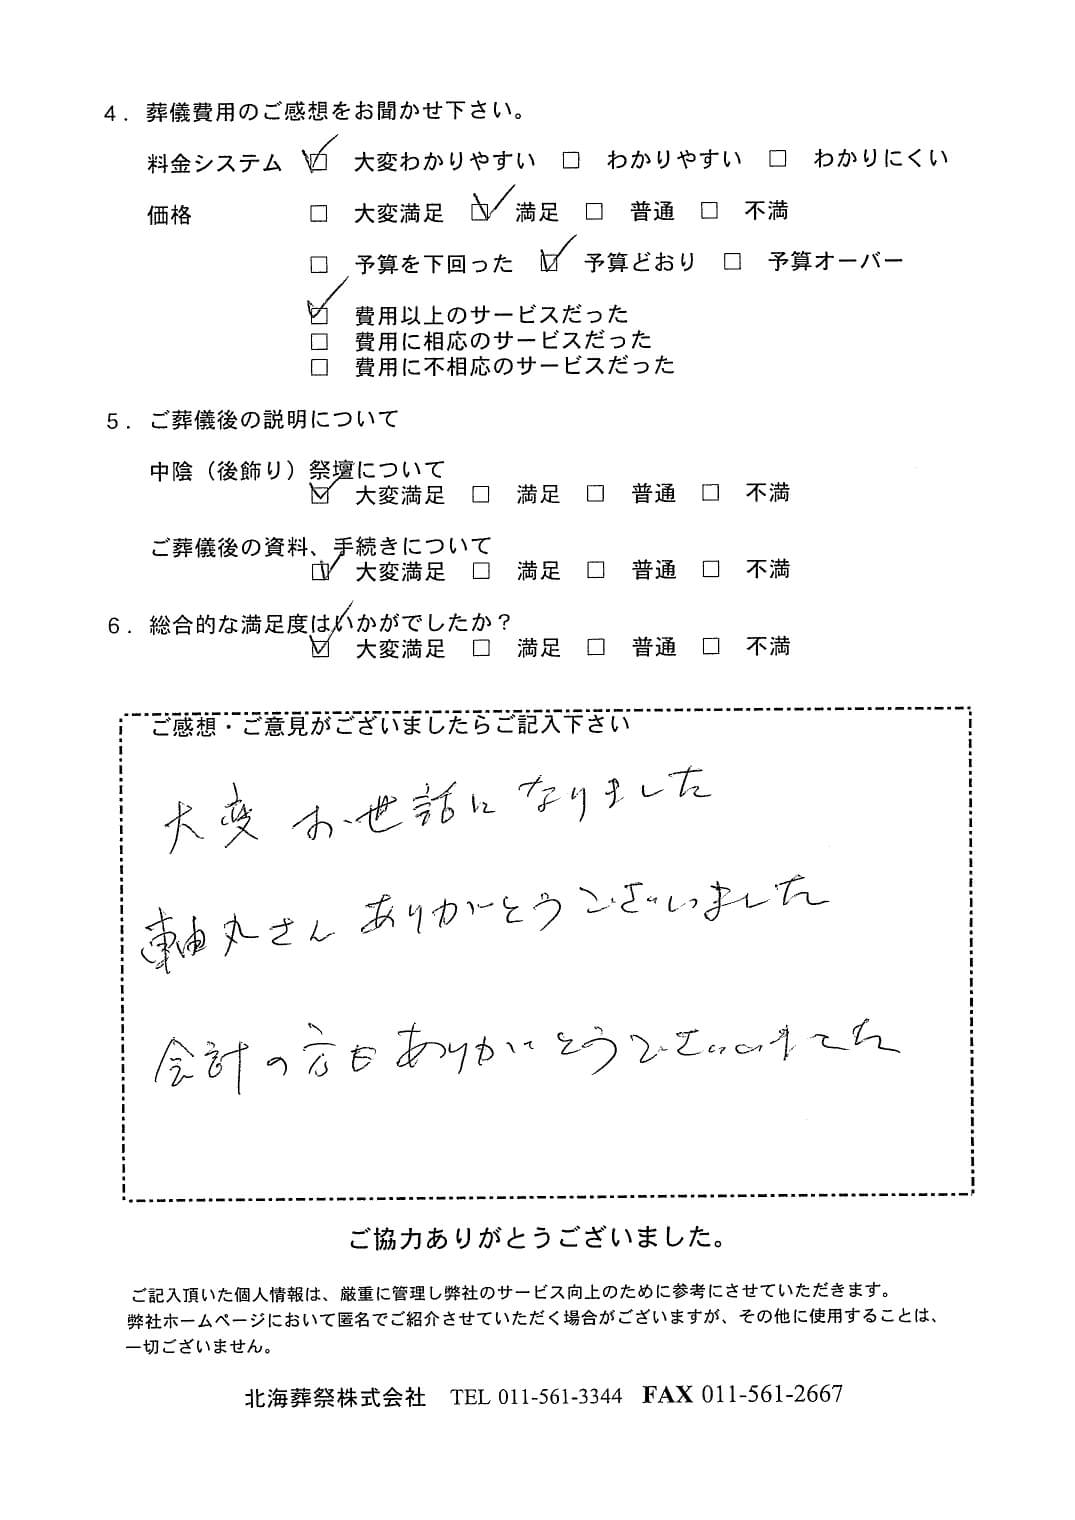 4．葬儀費用のご感想をお聞かせ下さい。
料金システム ☑ 大変わかりやすい □ わかりやすい □ わかりにくい
価格 □ 大変満足 ☑ 満足 □ 普通 □ 不満
□ 予算を下回った ☑ 予算どおり □ 予算オーバー
☑ 費用以上のサービスだった
□ 費用に相応のサービスだった
□ 費用に不相応のサービスだった
5．ご葬儀後の説明について
中陰（後飾り）祭壇について
☑ 大変満足 □ 満足 □ 普通 □ 不満
ご葬儀後の資料、手続きについて
☑ 大変満足 □ 満足 □ 普通 □ 不満
6．総合的な満足度はいかがでしたか？
☑ 大変満足 □ 満足 □ 普通 □ 不満
ご感想・ご意見がございましたらご記入下さい
大変お世話になりました
軸丸さんありがとうございました
会計の方もありがとうございました
ご協力ありがとうございました。
ご記入頂いた個人情報は、厳重に管理し弊社のサービス向上のために参考にさせていただきます。
弊社ホームページにおいて匿名でご紹介させていただく場合がございますが、その他に使用することは、
一切ございません。
北海葬祭株式会社 TEL 011-561-3344 FAX 011-561-2667